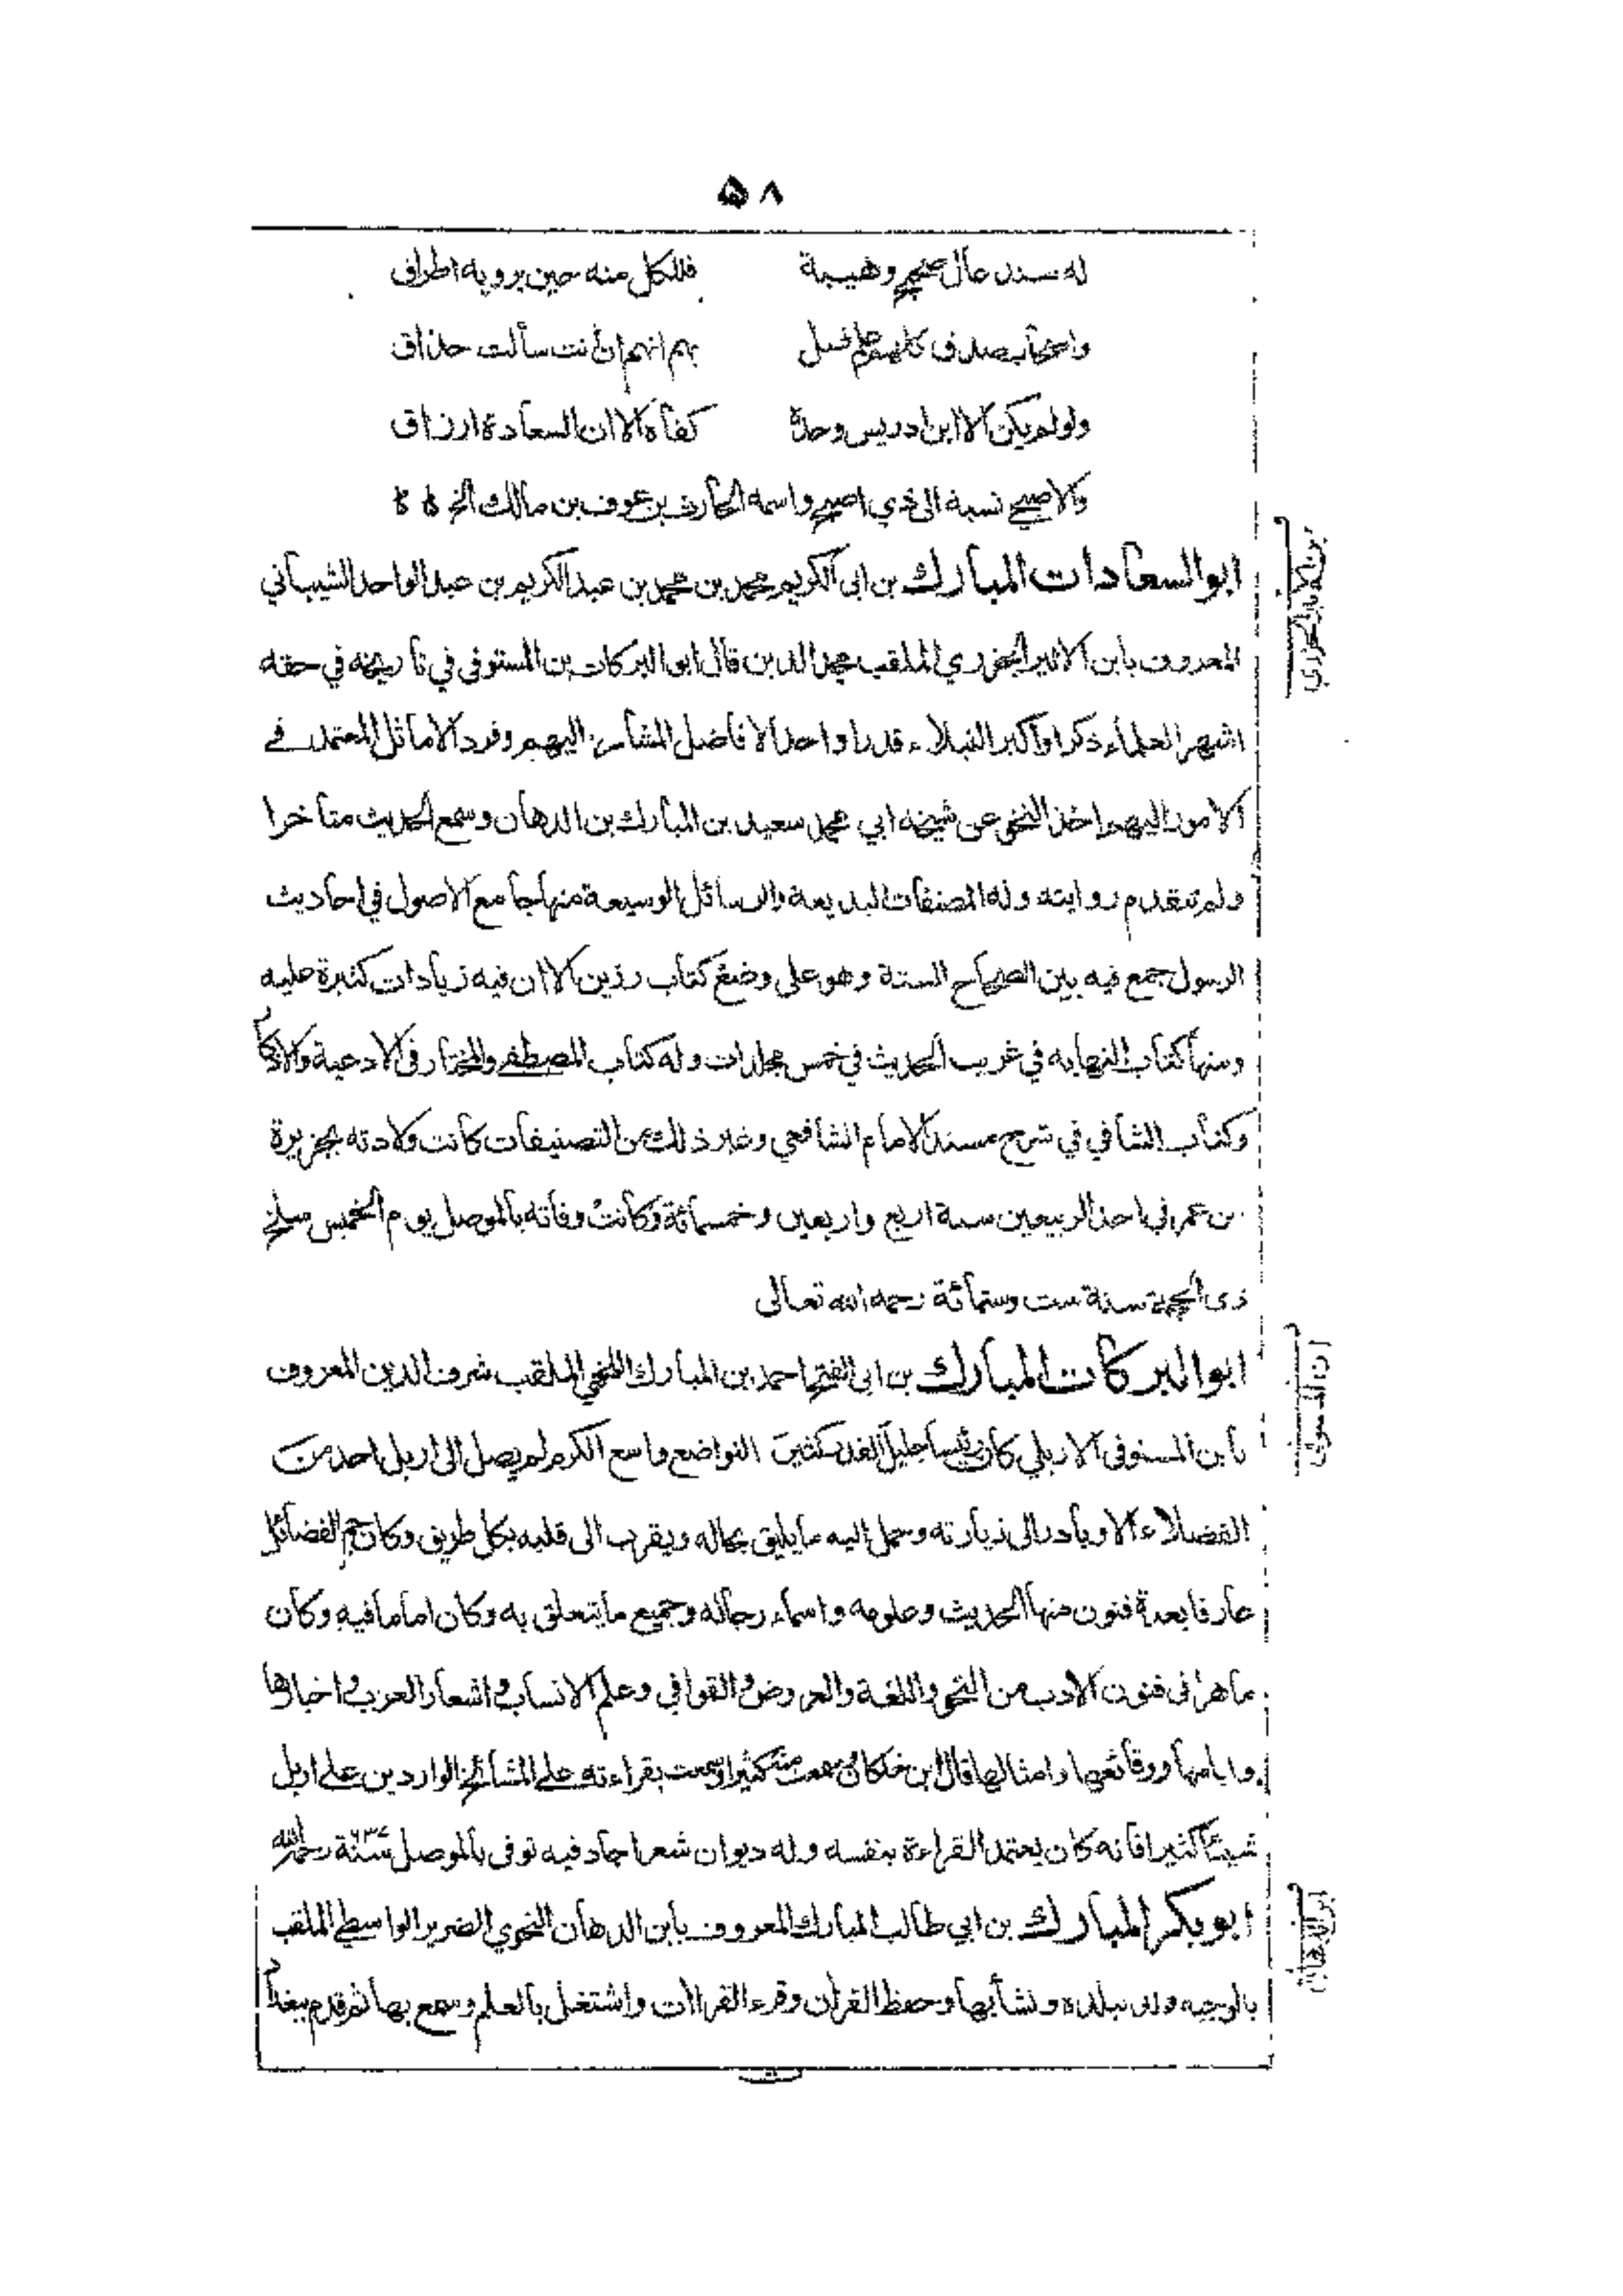 ٥٨
له سند عال صحيح وهيبة فللكل منه حين يرويه اطراق
واصحاب صدق كلهم علم فسل بهم انهم ان انت سألت حذاق
ولولم يكن الا ابن ادريس وحدة كفاه الا ان السعادة ارزاق
والاصبحي نسبة الى ذي اصبح واسمه الحارث بن عوف بن مالك الخ
ابوالسعادات المبارك بن ابى الكريم محمد بن محمد بن عبد الكريم بن عبد الواحد الشيباني
المعروف بابن الاثير الجزري الملقب مجد الدين قال ابو البركات بن المستوفى في تاريخه في حقه
اشهر العلماء ذكرا واكبر النبلاء قدرا واحد الافاضل المشار اليهم وفرد الاماثل المعتمد فے
الامور اليهم اخذ النحو عن شيخه ابي محمد سعيد بن المبارك بن الدهان وسمع الحديث متأخرا
ولم تتقدم روايته وله المصنفات البديعة والرسائل الوسيعة منها جامع الاصول في احاديث
الرسول جمع فيه بين الصحاح الستة وهو على وضع كتاب رزين الا ان فيه زيادات كثيرة عليه
ومنها كتاب النهايه في غريب الحديث في خمس مجلدات وله كتاب المصطفے والمختار فى الادعية والاذكار
وكتاب الشافي في شرح مسند الامام الشافعي وغير ذلك من التصنيفات كانت ولادته بجزيرة
بن عمر في احد الربيعين سنة اربع واربعين وخمسمائة وكانت وفاته بالموصل يوم الخميس سلخ
ذى الحجة سنة ست وستمائة رحمه الله تعالى
ابوالبركات المبارك بن ابى الفتح احمد بن المبارك اللخمي الملقب شرف الدين المعروف
بابن المستوفى الاربلي كان رئيسا جليل القدر كثير التواضع واسع الكرم لم يصل الى اربل احد من
الفضلاء الا وبادر الى زيارته وحمل اليه ما يليق بحاله ويقرب الى قلبه بكل طريق وكان جم الفضائل
عارفا بعدة فنون منها الحديث وعلومه واسماء رجاله وجميع ما يتعلق به وكان اماما فيه وكان
ماهرا فى فنون الادب من النحو واللغة والعروض والقوافي وعلم الانساب واشعار العرب واخبارها
وايامها ووقائعها وامثالها قال ابن خلكان سمعت منه كثيرا وسمعت بقراءته علے المشائخ الواردين علے اربل
شيئا كثيرا فانه كان يعتمد القراءة بنفسه وله ديوان شعر اجاد فيه توفى بالموصل سنة ٦٣٧ رحمه الله
ابوبكر المبارك بن ابي طالب المبارك المعروف بابن الدهان النحوي الضرير الواسطي الملقب
بالوجيه ولد ببلده ونشأ بها وحفظ القرآن وقرء القراآت واشتغل بالعلم وسمع بها ثم قدم بغداد
ابن الدهان